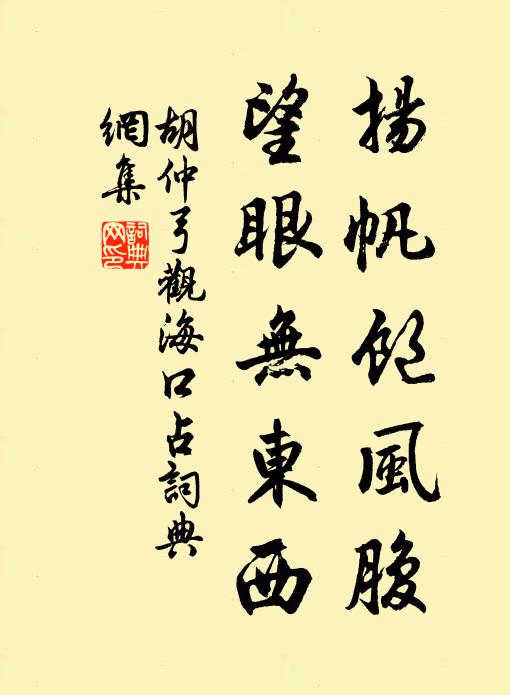 揚帆飽風腹
望眼無東西
胡仲弓觀海口占詞典
網集
詞典
网印